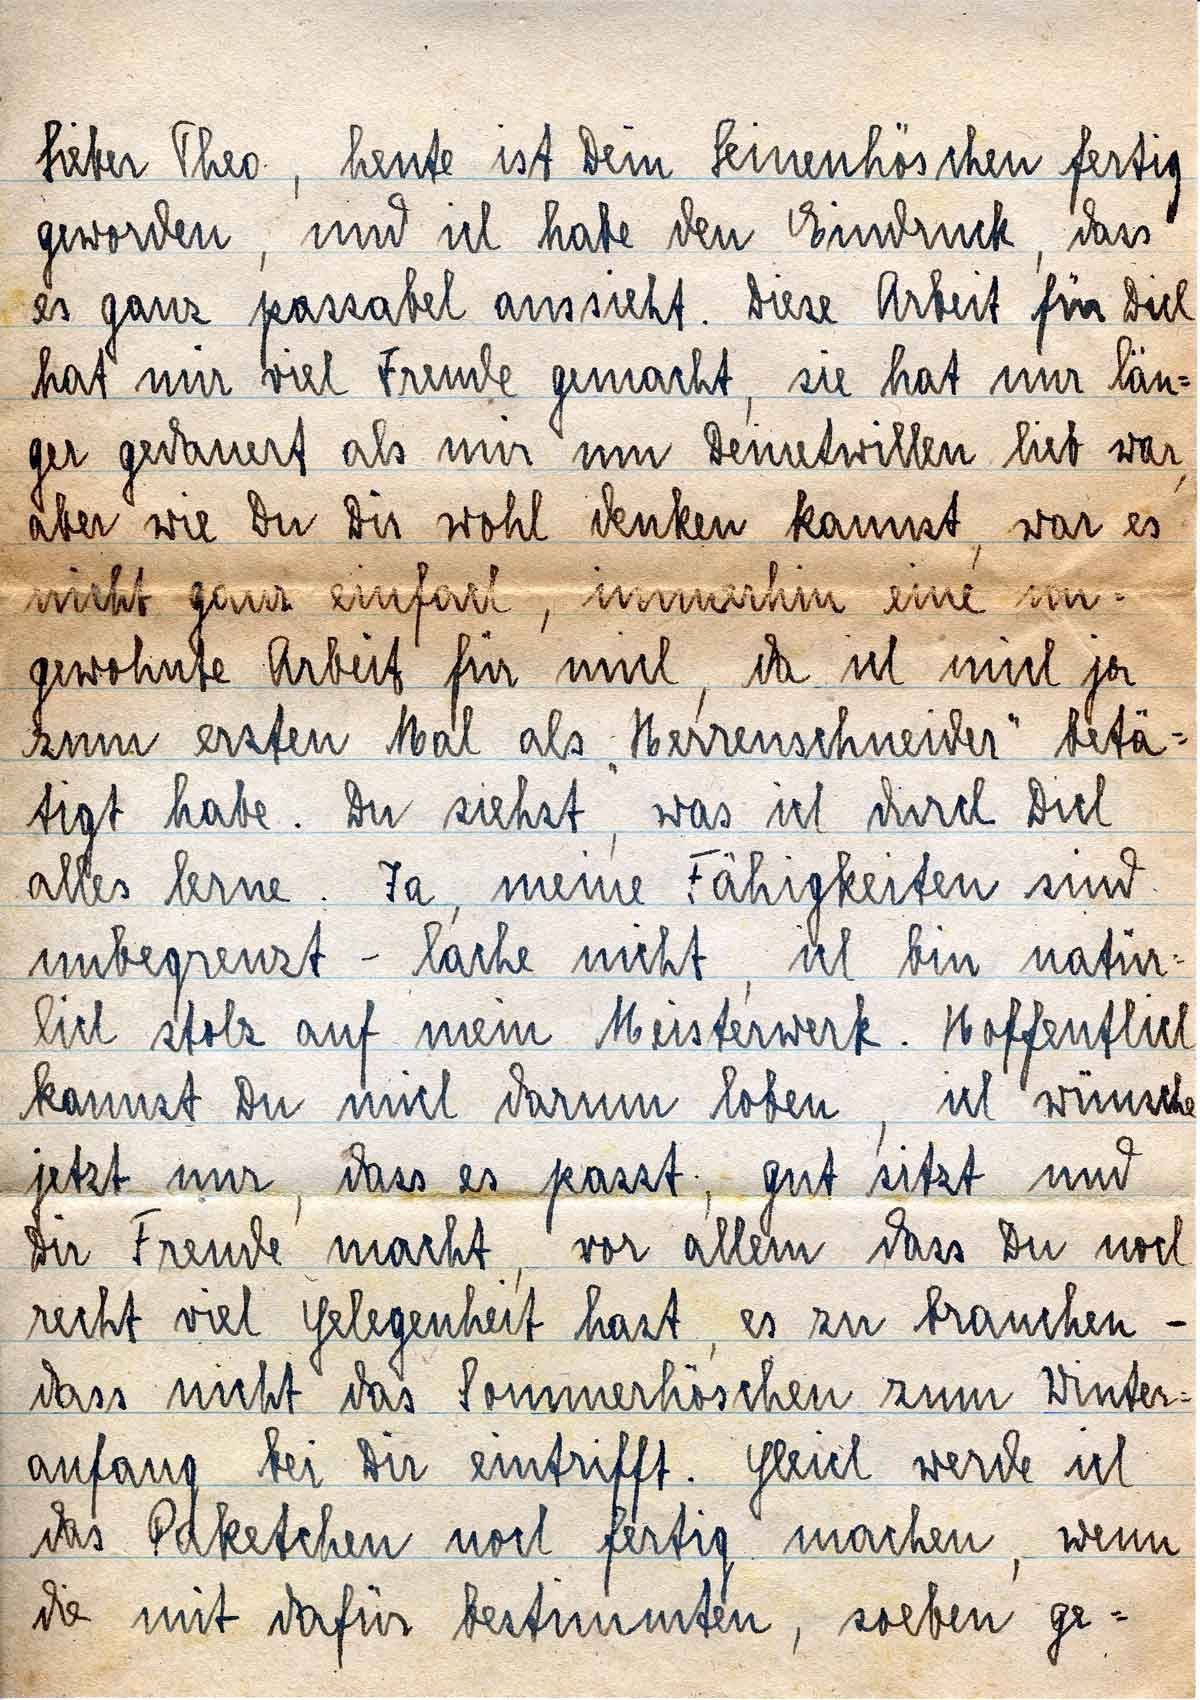 Lieber Theo, heute ist Dein Leinenhöschen fertig
geworden, und ich habe den Eindruck, dass
es ganz passabel aussieht. Diese Arbeit für Dich
hat mir viel Freude gemacht, sie hat nur län=
ger gedauert als mir um Deinetwillen lieb war,
aber wie Du Dir wohl denken kannst, war es
nicht ganz einfach, immerhin eine un=
gewohnte Arbeit für mich, da ich mich ja
zum ersten Mal als „Herrenschneider" betä=
tigt habe. Du siehst, was ich durch Dich
alles lerne. Ja, meine Fähigkeiten sind
unbegrenzt - lache nicht, ich bin natür=
lich stolz auf mein Meisterwerk. Hoffentlich
kannst Du mich darum loben, ich wünsche
jetzt nur, dass es passt, gut sitzt und
Dir Freude macht, vor allem dass Du noch
recht viel Gelegenheit hast, es zu brauchen -
dass nicht das Sommerhöschen zum Winter=
anfang bei Dir eintrifft. Gleich werde ich
das Paketchen noch fertig machen, wenn
die mit dafür bestimmten, soeben ge=